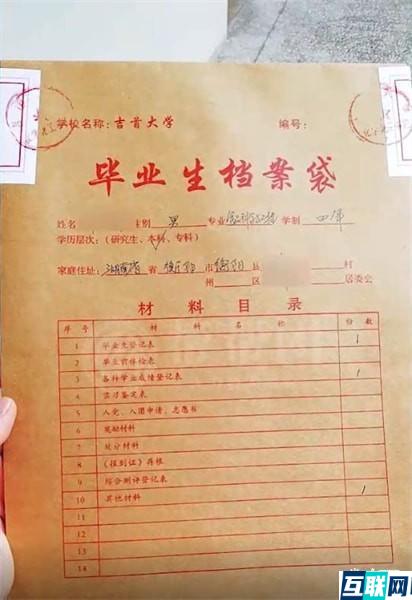 学校名称：吉首大学 编号：
毕业生档案袋
姓名 性别 男 专业 学制 四年
学历层次：（研究生、本科、专科）
家庭住址：湖南省 省 衡阳 市 衡阳 县 村
州 区 居委会
材料目录
序号 材料名称 份数
1 毕业生登记表 1
2 毕业前体检表
3 各种学业成绩登记表 1
4 实习鉴定表
5 入党、入团申请、志愿书
6 奖励材料
7 处分材料
8 《报到证》存根
9 综合测评登记表
10 其他材料 1
11
12
13
14
互联网